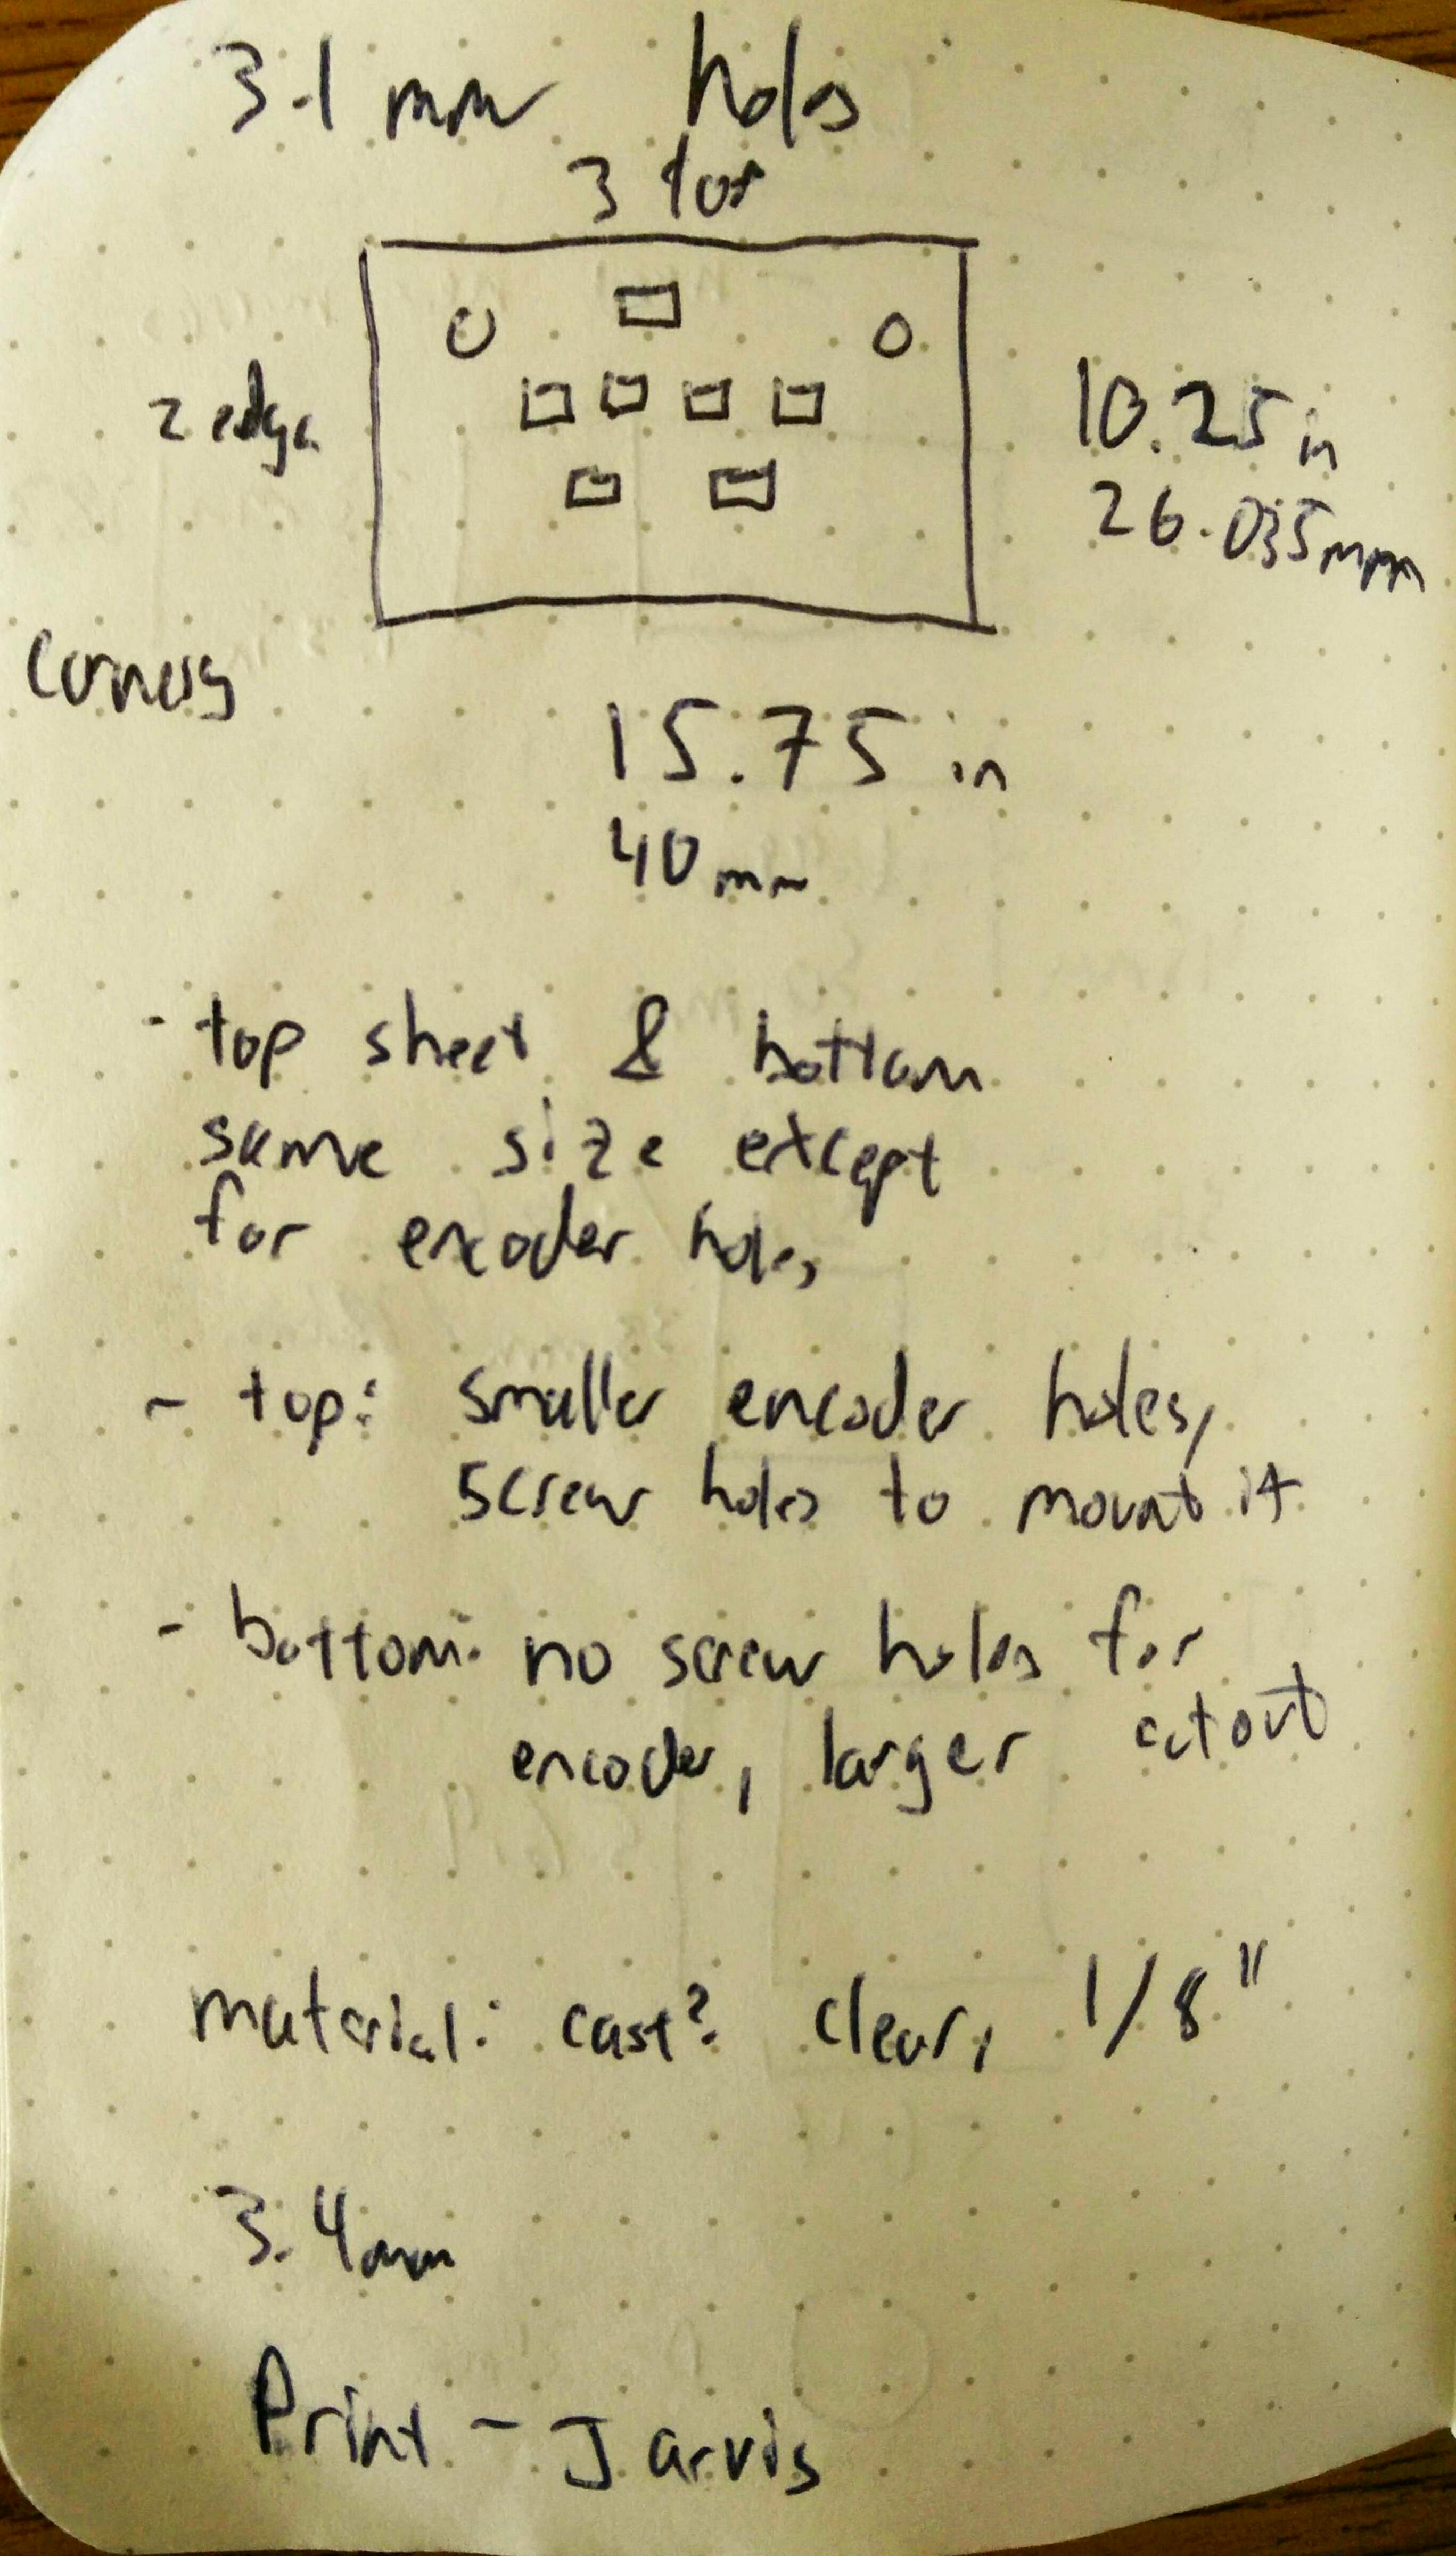 3.1 mm holes
3 top
2 edge
10.25 in
26.035mm
corners
15.75 in
40mm
- top sheet & bottom
same size except
for encoder holes
- top: smaller encoder holes,
screw holes to mount it
- bottom: no screw holes for
encoder, larger cutout
material: cast? clear, 1/8"
3.4mm
Print - Jarvis